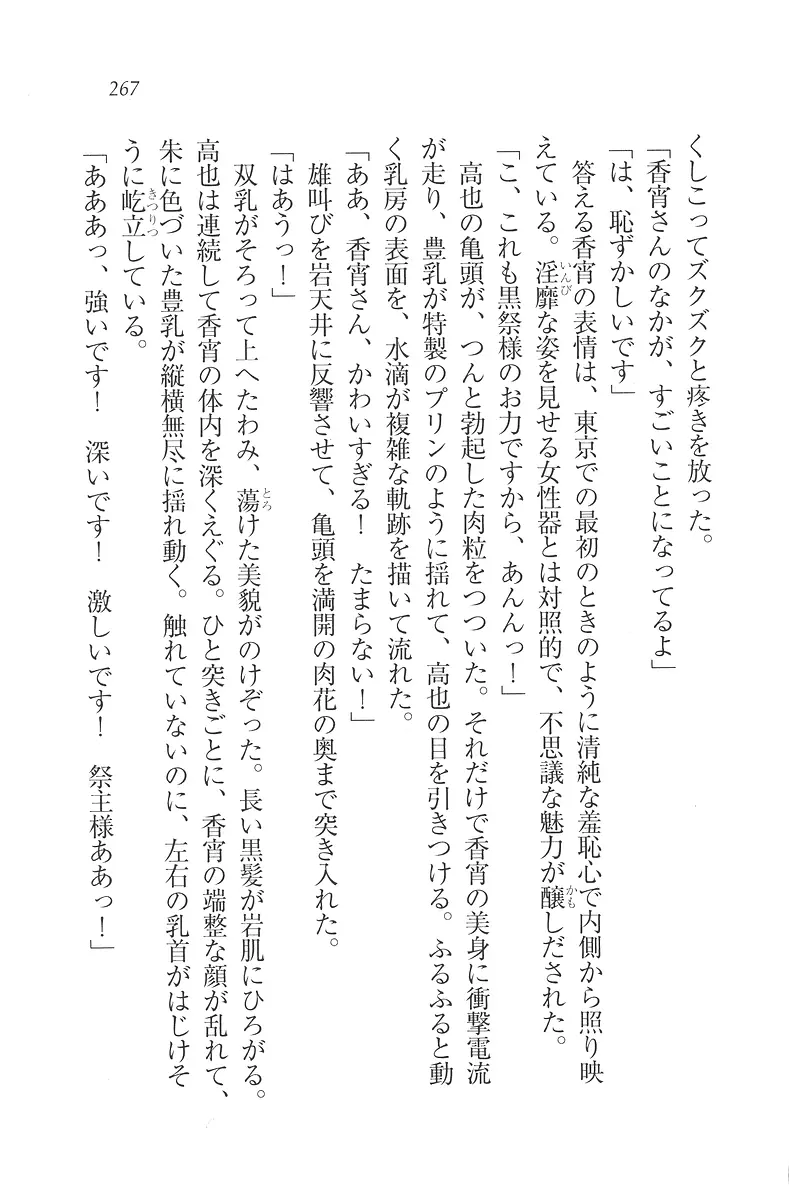 267
くしこってズクズクと疼きを放った。
「香宵さんのなかが、すごいことになってるよ」
「は、恥ずかしいです」
　答える香宵の表情は、東京での最初のときのように清純な羞恥心で内側から照り映
えている。淫靡いんびな姿を見せる女性器とは対照的で、不思議な魅力が醸かもしだされた。
「こ、これも黒祭様のお力ですから、あんんっ！」
　高也の亀頭が、つんと勃起した肉粒をつついた。それだけで香宵の美身に衝撃電流
が走り、豊乳が特製のプリンのように揺れて、高也の目を引きつける。ふるふると動
く乳房の表面を、水滴が複雑な軌跡を描いて流れた。
「ああ、香宵さん、かわいすぎる！　たまらない！」
　雄叫びを岩天井に反響させて、亀頭を満開の肉花の奥まで突き入れた。
「はあうっ！」
　双乳がそろって上へたわみ、蕩とろけた美貌がのけぞった。長い黒髪が岩肌にひろがる。
高也は連続して香宵の体内を深くえぐる。ひと突きごとに、香宵の端整な顔が乱れて、
朱に色づいた豊乳が縦横無尽に揺れ動く。触れていないのに、左右の乳首がはじけそ
うに屹立きつりつしている。
「あああっ、強いです！　深いです！　激しいです！　祭主様ああっ！」